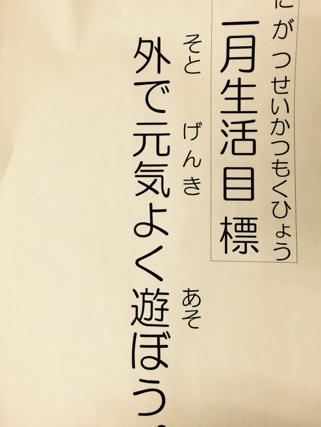 にがつせいかつもくひょう
二月生活目標
そと げんき あそ
外で元気よく遊ぼう。